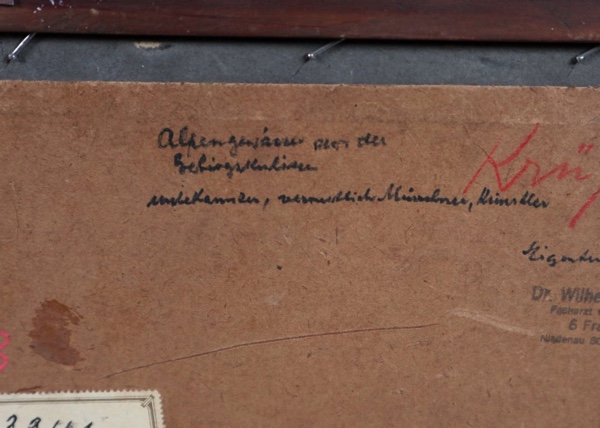 Alpengewässer vor der
Gebirgskulisse
unbekannter, vermutlich Münchner, Künstler
Krü
Eigentu
Dr. Wilhe
Facharzt
6 Fra
Niedenau